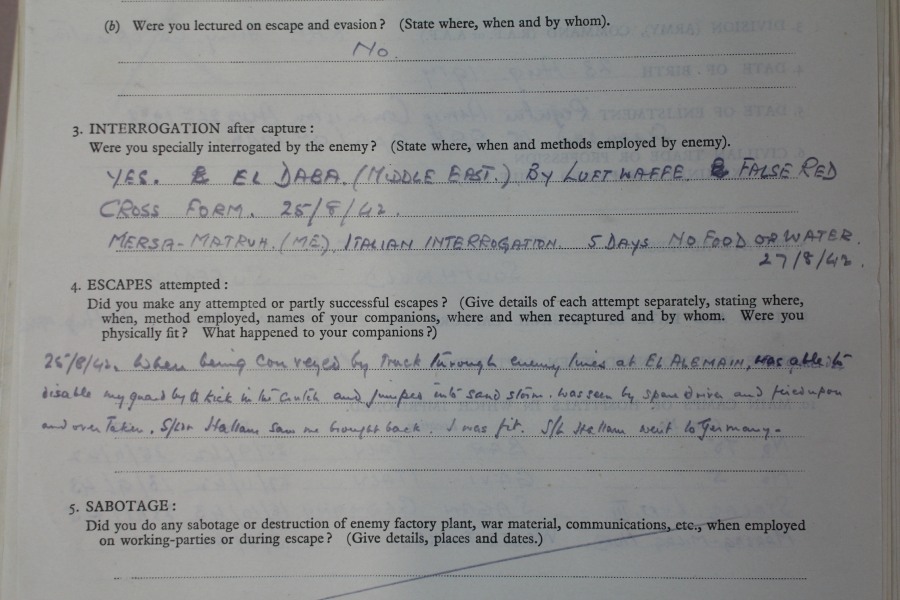 (b) Were you lectured on escape and evasion? (State where, when and by whom).
No.
3. INTERROGATION after capture:
Were you specially interrogated by the enemy? (State where, when and methods employed by enemy).
YES. & EL DABA. (MIDDLE EAST.) BY LUFTWAFFE. & FALSE RED
CROSS FORM. 25/8/42.
MERSA-MATRUH. (ME) ITALIAN INTERROGATION. 5 DAYS NO FOOD OR WATER.
27/8/42.
4. ESCAPES attempted:
Did you make any attempted or partly successful escapes? (Give details of each attempt separately, stating where,
when, method employed, names of your companions, where and when recaptured and by whom. Were you
physically fit? What happened to your companions?)
25/8/42. When being conveyed by truck through enemy lines at EL ALEMAIN, was able to
disable my guard by a kick in the crutch and jumped into sand storm. was seen by spare driver and fired upon
and over taken. S/Ldr Hallam saw me brought back. I was fit. S/L Hallam went to Germany.
5. SABOTAGE:
Did you do any sabotage or destruction of enemy factory plant, war material, communications, etc., when employed
on working-parties or during escape? (Give details, places and dates.)